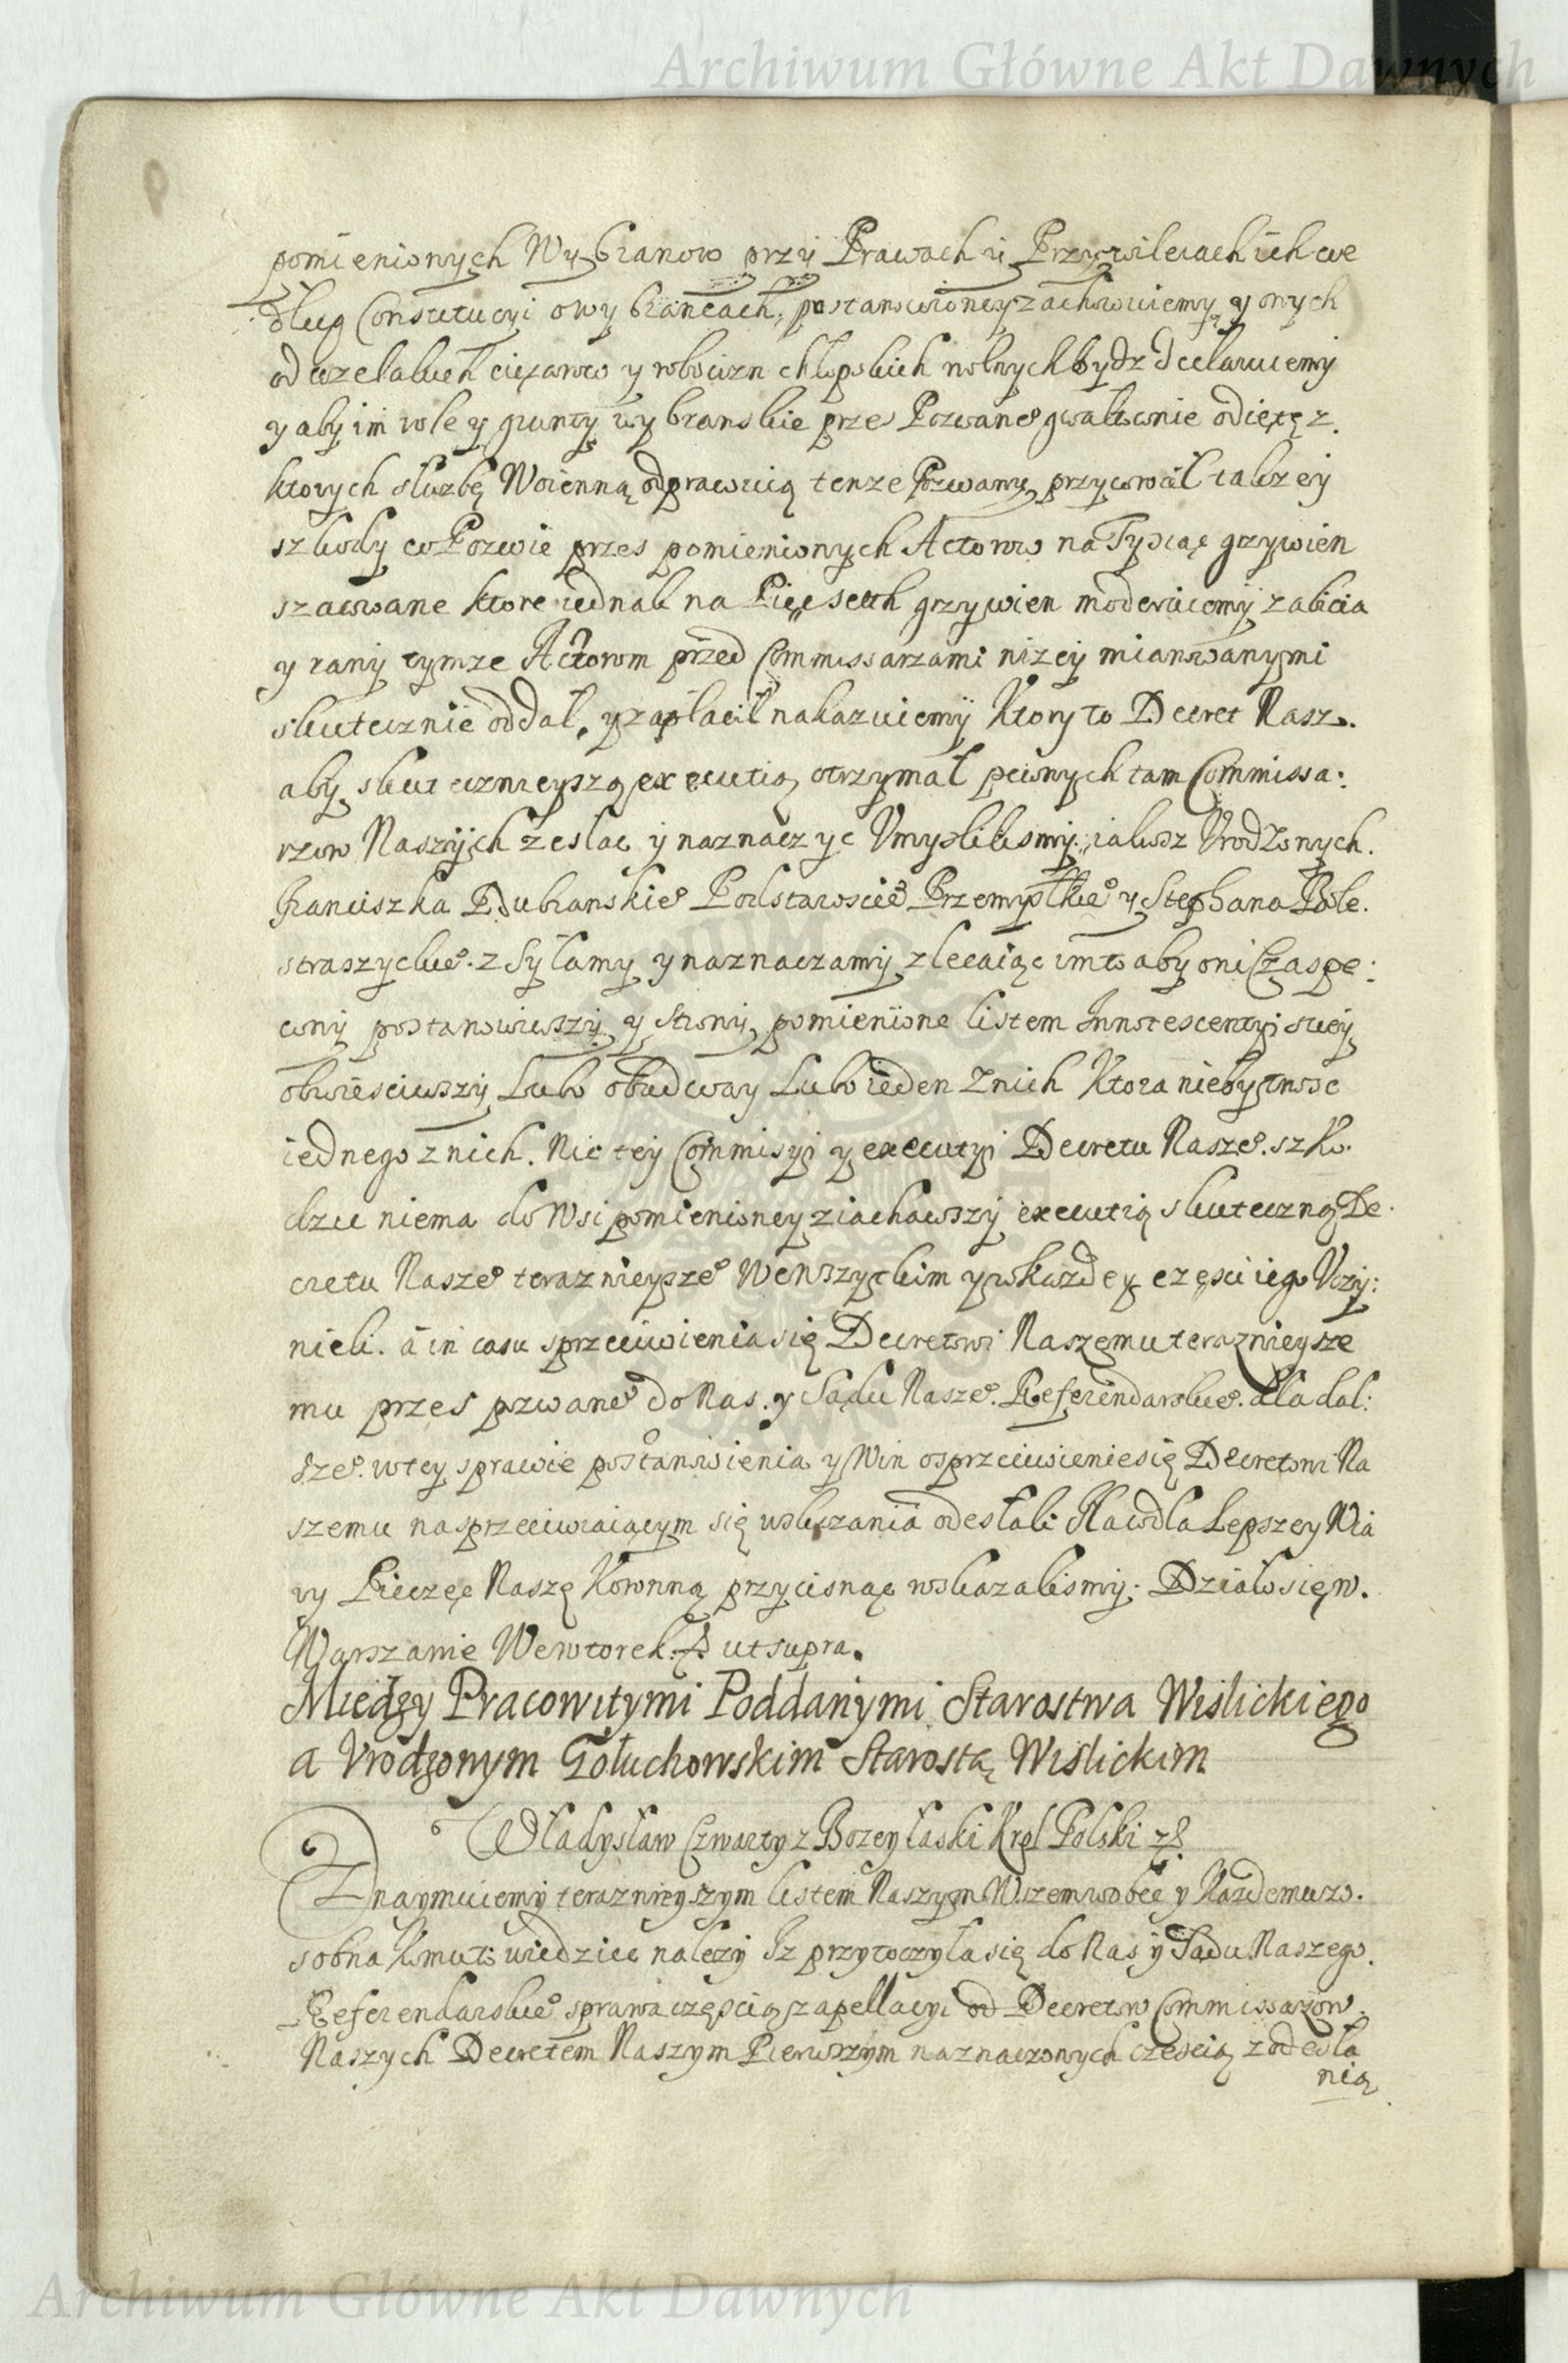 Archiwum Główne Akt Dawnych
pomienionych Wybrancow przy Prawach y Przywileiach ich we
dług Constitucyi o wybrancach, postanowioney zachowuiemy y onych
od wzelakich cięzarow y robocizn chłopskich wolnych bydz declaruiemy
y aby im role y grunty wybranskie przez Pozwane° gwałtownie odięte z
ktorych słuzbę Woienną odprawuią tenze Pozwany przywrocił takze y
szkody w Pozwie przes pomienionych Actorow na Tysiąc grzywien
szacowane ktore iednak na Pięcseth grzywien moderuiemy zabicia
y rany tymze Actorom przed Commissarzami nizey mianowanymi
skutecznie oddał, y zapłacił nakazuiemy Ktory to Decret Nasz.
aby skutecznieyszą executią otrzymał pewnych tam Commissa:
rzow Naszych zeslac y naznaczyc Vmyslilismy, iakosz Vrodzonych.
Franciszka Dubranskie° Podstaroscie° Przemyslkie° y Stephana Pole.
straszyckie°. z Syłamy y naznaczamy zlecaiąc im to aby oni Czas pe:
wny postanowiwszy y Strony pomienione listem Innotescentyi swey
obwiesciwszy Lubo obudway Lubo ieden Znich Ktora niebytnosc
iednego znich. Nic tey Commisyi y executyi Decretu Nasze°. szko.
dzic niema do Wsi pomienioney ziachawszy executią skuteczną De.
cretu Nasze° teraznieysze° We Wszytkim y w kazdey częsci iego Vczy:
nieli. a in casu sprzeciwienia się Decretowi Naszemu teraznieysze
mu przes pozwane° do Nas. y Sądu Nasze°. Referendarskie°. dla dal:
sze°. w tey sprawie postanowienia y Win o sprzeciwienie się Decretowi Na
szemu na sprzeciwiaiącym się wskazania odesłali Na co dla Lepszey Wia
ry Pieczęc Naszę Koronną przycisnąc wskazalismy. Działo się w.
Warszawie We wtorek. D ut supra.
Między Pracowitymi Poddanymi Starostwa Wislickiego
a Vrodzonym Gołuchowskim Starostą Wislickim
Władysław Czwarty z Bozey łaski Krol Polski z&
Znaymuiemy teraznieyszym listem Naszym Wszem wobec y Kazdemu zo.
sobna Komu to wiedziec nalezy Iz przytoczyła się do Nas y Sądu Naszego.
Referendarskie° sprawa częscią z apellacyi od Decretow Commissarzow
Naszych Decretem Naszym Pierwszym naznaczonych czescią z odesła
nią
Archiwum Główne Akt Dawnych